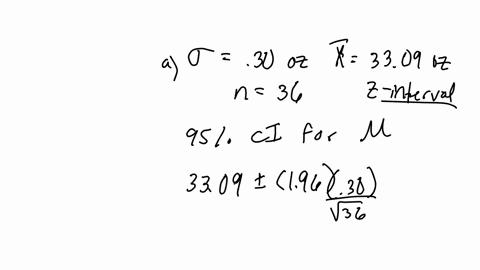 a) σ = .30 oz x̄ = 33.09 oz
n = 36 z-interval
95% CI for μ
33.09 ± (1.96)(.30)
√36